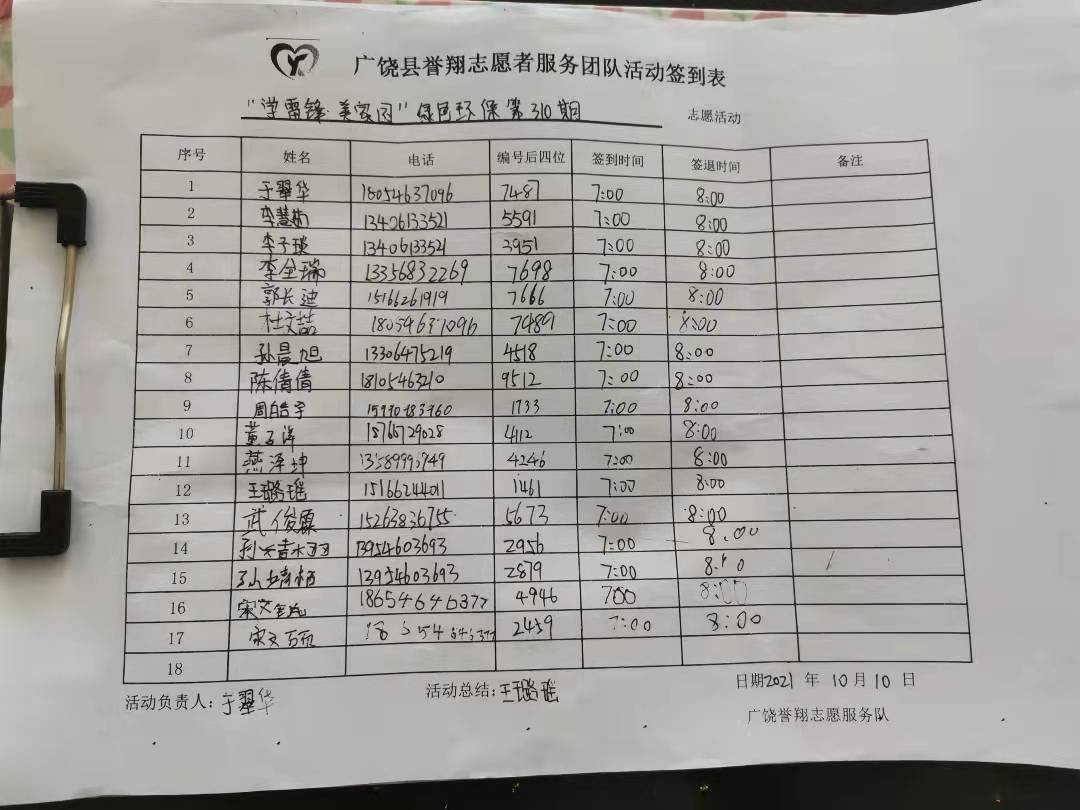 广饶县誉翔志愿者服务团队活动签到表
“学雷锋·美家园”绿色环保第310期 志愿活动
序号 姓名 电话 编号后四位 签到时间 签退时间 备注
1 于翠华 18054637096 7487 7:00 8:00
2 李慧茹 13406133521 5591 7:00 8:00
3 李子琰 13406133521 3951 7:00 8:00
4 李全瑞 13356832269 7698 7:00 8:00
5 郭长迪 15166261919 7666 7:00 8:00
6 杜文喆 18054637096 7489 7:00 8:00
7 孙晨旭 13306475219 4518 7:00 8:00
8 陈倩倩 18105463210 9512 7:00 8:00
9 周皓宇 1733 7:00 8:00
10 黄子洋 18765729028 4112 7:00 8:00
11 燕泽坤 4246 7:00 8:00
12 王璐瑶 15166244011 1461 7:00 8:00
13 武俊霖 15263836755 5673 7:00 8:00
14 13954603693 2956 7:00 8:00
15 13954603693 2879 7:00
16 18654646377 4946 700 8:00
17 2459 7:00 8:00
18
活动负责人:于翠华 活动总结:王璐瑶 日期2021年10月10日
广饶誉翔志愿服务队